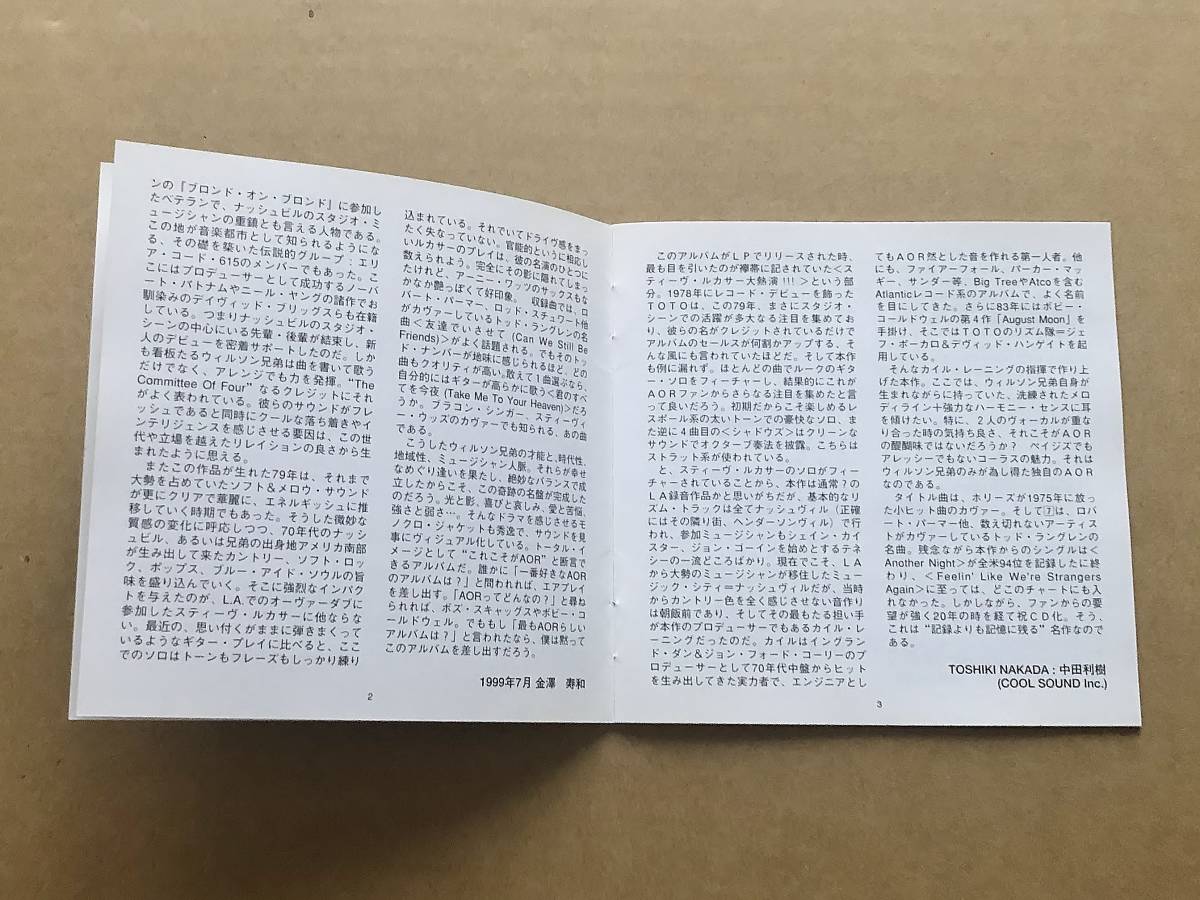 ンの『ブロンド・オン・ブロンド』に参加し
たベテランで、ナッシュビルのスタジオ・ミ
ュージシャンの重鎮とも言える人物である。
この地が音楽都市として知られるようにな
る、その礎を築いた伝説的グループ：エリ
ア・コード・615のメンバーでもあった。こ
こにはプロデューサーとして成功するノーバ
ート・パトナムやニール・ヤングの諸作でお
馴染みのデイヴィッド・ブリッグスらも在籍
している。つまりナッシュビルのスタジオ・
シーンの中心にいる先輩・後輩が結束し、新
人のデビューを密着サポートしたのだ。しか
も看板たるウィルソン兄弟は曲を書いて歌う
だけでなく、アレンジでも力を発揮。“The
Committee Of Four” なるクレジットにそれ
がよく表われている。彼らのサウンドがフレ
ッシュであると同時にクールな落ち着きやイ
ンテリジェンスを感じさせる要因は、この世
代や立場を越えたリレイションの良さから生
まれたように思える。
またこの作品が生れた79年は、それまで
大勢を占めていたソフト＆メロウ・サウンド
が更にクリアで華麗に、エネルギッシュに推
移していく時期でもあった。そうした微妙な
質感の変化に呼応しつつ、70年代のナッシ
ュビル、あるいは兄弟の出身地アメリカ南部
が生み出して来たカントリー、ソフト・ロッ
ク、ポップス、ブルー・アイド・ソウルの旨
味を盛り込んでいく。そこに強烈なインパク
トを与えたのが、L.A.でのオーヴァーダブに
参加したスティーヴ・ルカサーに他ならな
い。最近の、思い付くがままに弾きまくって
いるようなギター・プレイに比べると、ここ
でのソロはトーンもフレーズもしっかり練り
込まれている。それでいてドライヴ感をまっ
たく失なっていない。官能的というに相応し
いルカサーのプレイは、彼の名演のひとつに
数えられよう。完全にその影に隠れてしまっ
たけれど、アーニー・ワッツのサックスもな
かなか艶っぽくて好印象。 収録曲では、ロ
バート・パーマー、ロッド・スチュワート他
がカヴァーしているトッド・ラングレンの名
曲＜友達でいさせて (Can We Still Be
Friends)＞がよく話題される。でもそのトッ
ド・ナンバーが地味に感じられるほど、どの
曲もクオリティが高い。敢えて１曲選ぶなら、
自分的にはギターが高らかに歌う＜君のすべ
てを今夜 (Take Me To Your Heaven)＞だろ
うか。ブラコン・シンガー、スティーヴィ
ー・ウッズのカヴァーでも知られる、あの曲
である。
こうしたウィルソン兄弟の才能と、時代性、
地域性、ミュージシャン人脈。それらが幸せ
なめぐり逢いを果たし、絶妙なバランスで成
立したからこそ、この奇跡の名盤が完成した
のだろう。光と影、喜びと哀しみ、愛と苦悩、
強さと弱さ…。そんなドラマを感じさせるモ
ノクロ・ジャケットも秀逸で、サウンドを見
事にヴィジュアル化している。トータル・イ
メージとして “これこそがAOR” と断言で
きるアルバムだ。誰かに「一番好きなAOR
のアルバムは？」と問われれば、エアプレイ
を差し出す。「AORってどんなの？」と尋ね
られれば、ボズ・スキャッグスやボビー・コ
ールドウェル。でももし「最もAORらしい
アルバムは？」と言われたなら、僕は黙って
このアルバムを差し出すだろう。
1999年7月 金澤 寿和
2
このアルバムがＬＰでリリースされた時、
最も目を引いたのが襷帯に記されていた＜ス
ティーヴ・ルカサー大熱演!!!＞という部
分。1978年にレコード・デビューを飾った
ＴＯＴＯは、この79年、まさにスタジオ・
シーンでの活躍が多大なる注目を集めてお
り、彼らの名がクレジットされているだけで
アルバムのセールスが何割かアップする、そ
んな風にも言われていたほどだ。そして本作
も例に漏れず。ほとんどの曲でルークのギタ
ー・ソロをフィーチャーし、結果的にこれが
ＡＯＲファンからさらなる注目を集めたと言
って良いだろう。初期だからこそ楽しめるレ
スポール系の太いトーンでの豪快なソロ、ま
た逆に４曲目の＜シャドウズ＞はクリーンな
サウンドでオクターブ奏法を披露。こちらは
ストラット系が使われている。
と、スティーヴ・ルカサーのソロがフィー
チャーされていることから、本作は通常？の
ＬＡ録音作品かと思いがちだが、基本的なリ
ズム・トラックは全てナッシュヴィル（正確
にはその隣り街、ヘンダーソンヴィル）で行
われ、参加ミュージシャンもシェイン・カイ
スター、ジョン・ゴーインを始めとするテネ
シーの一流どころばかり。現在でこそ、ＬＡ
から大勢のミュージシャンが移住したミュー
ジック・シティ＝ナッシュヴィルだが、当時
からカントリー色を全く感じさせない音作り
は朝飯前であり、そしてその最もたる担い手
が本作のプロデューサーでもあるカイル・レ
ーニングだったのだ。カイルはイングラン
ド・ダン＆ジョン・フォード・コーリーのプ
ロデューサーとして70年代中盤からヒット
を生み出してきた実力者で、エンジニアとし
てもＡＯＲ然とした音を作れる第一人者。他
にも、ファイアーフォール、パーカー・マッ
ギー、サンダー等、Big TreeやAtcoを含む
Atlanticレコード系のアルバムで、よく名前
を目にしてきた。さらに83年にはボビー・
コールドウェルの第４作「August Moon」を
手掛け、そこではＴＯＴＯのリズム隊＝ジェ
フ・ポーカロ＆デヴィッド・ハンゲイトを起
用している。
そんなカイル・レーニングの指揮で作り上
げた本作。ここでは、ウィルソン兄弟自身が
生まれながらに持っていた、洗練されたメロ
ディライン＋強力なハーモニー・センスに耳
を傾けたい。特に、２人のヴォーカルが重な
り合った時の気持ち良さ、それこそがＡＯＲ
の醍醐味ではないだろうか？ ペイジズでも
アレッシーでもないコーラスの魅力。それは
ウィルソン兄弟のみが為し得た独自のＡＯＲ
なのである。
タイトル曲は、ホリーズが1975年に放っ
た小ヒット曲のカヴァー。そして⑦は、ロバ
ート・パーマー他、数え切れないアーティス
トがカヴァーしているトッド・ラングレンの
名曲。残念ながら本作からのシングルは＜
Another Night＞が全米94位を記録したに終
わり、＜Feelin' Like We're Strangers
Again＞に至っては、どこのチャートにも入
れなかった。しかしながら、ファンからの要
望が強く20年の時を経て祝ＣＤ化。そう、
これは “記録よりも記憶に残る” 名作なので
ある。
TOSHIKI NAKADA : 中田利樹
(COOL SOUND Inc.)
3